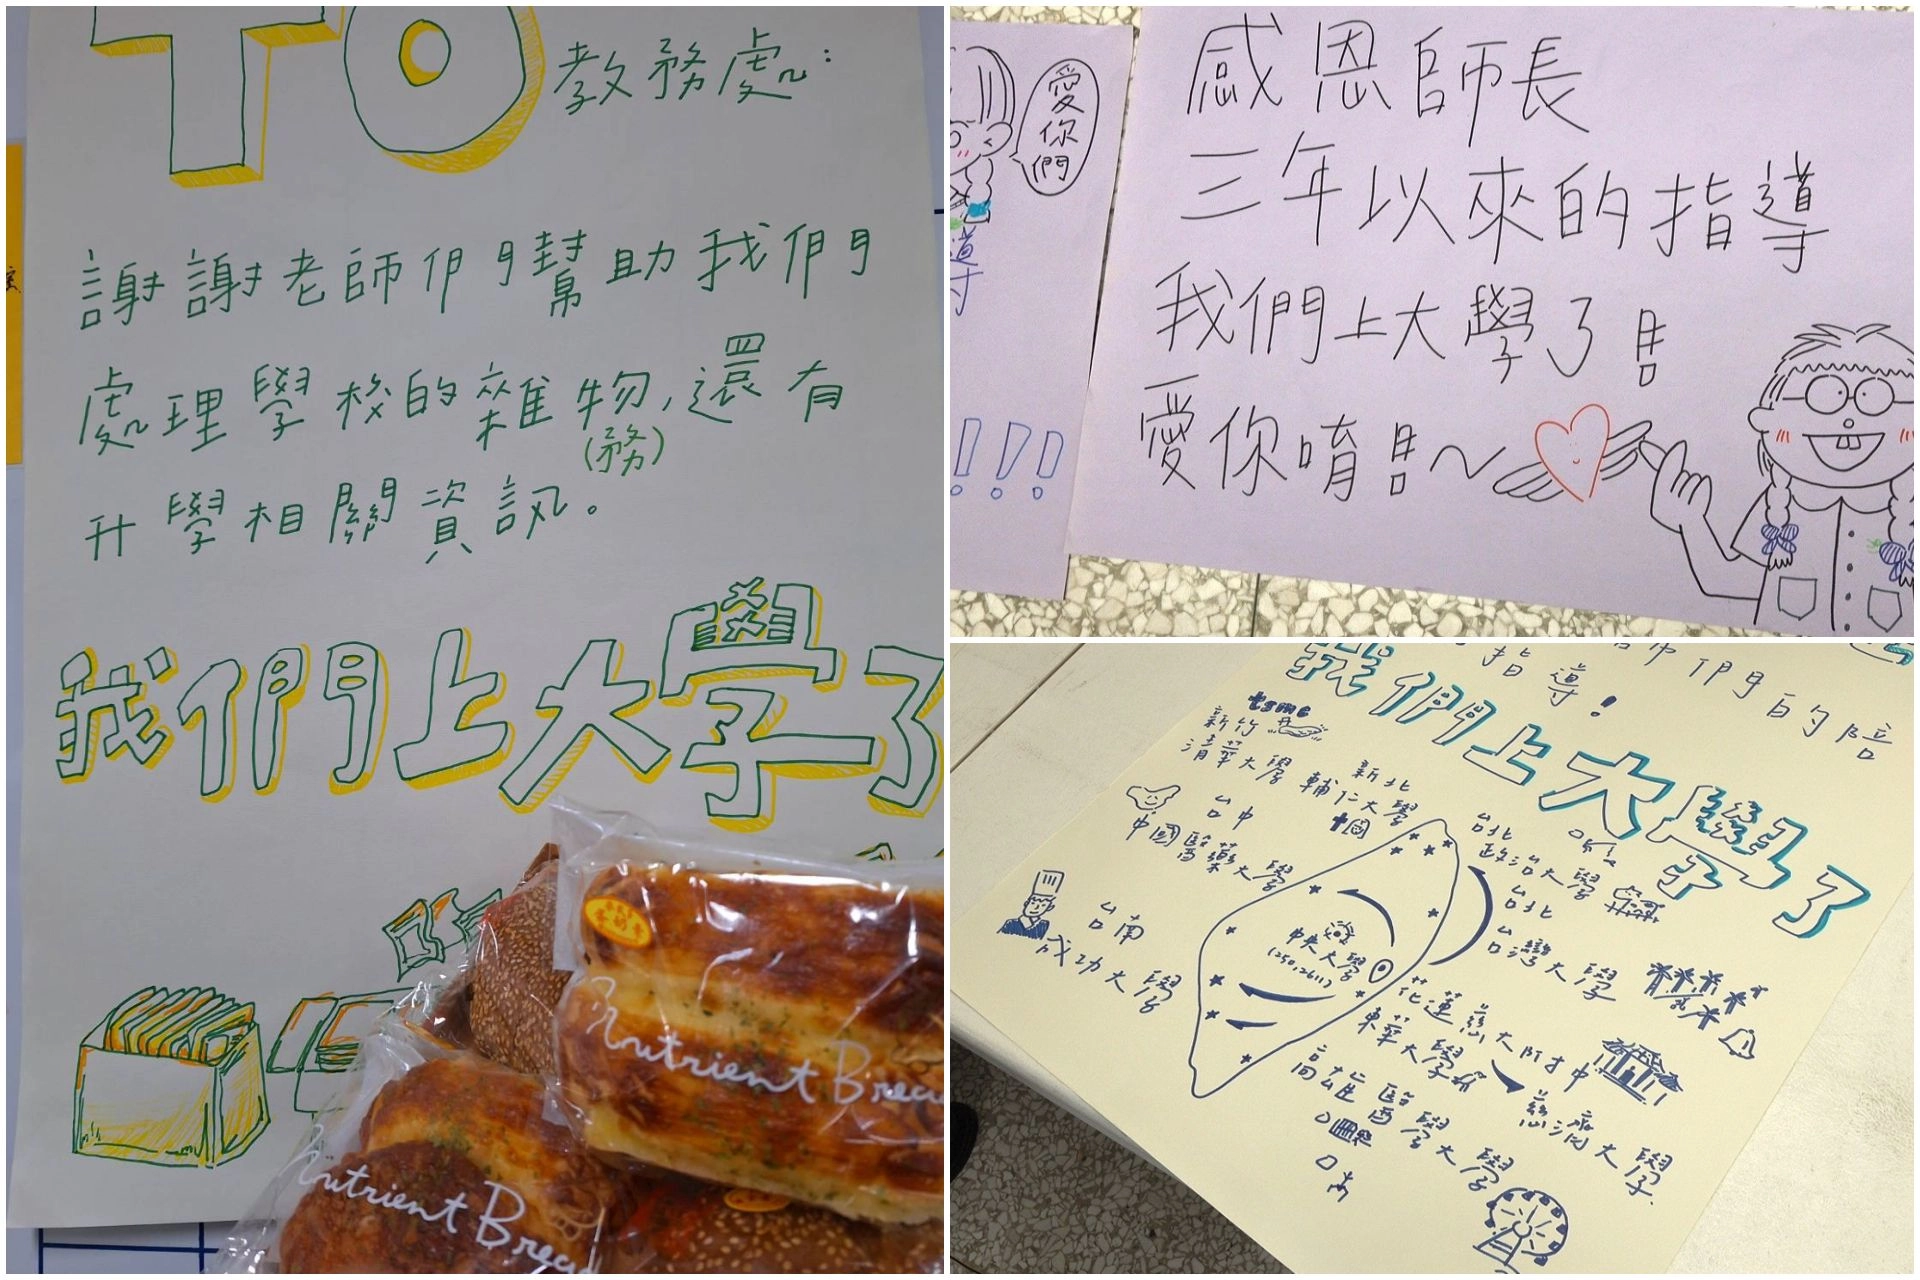 TO
教務處:
謝謝老師們幫助我們
處理學校的雜物,還有
(務)
升學相關資訊。
我們上大學了
Nutrient Bread
Nutrient Bread
愛你們
導
!!!
感恩師長
三年以來的指導
我們上大學了!!
愛你唷!!~
師們的陪
指導!
我們上大學了
tsmc
新竹
清華大學
新北
輔仁大學
台中
中國醫藥大學
台北
政治大學
台北
台灣大學
台南
成功大學
中央大學
(250,2611)
花蓮慈大附中
東華大學
慈濟大學
高雄醫學大學